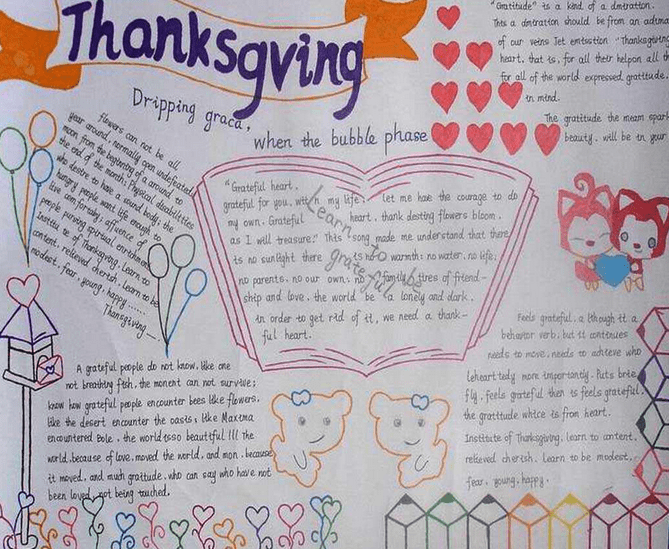 Thanksgving
Dripping graca,
when the bubble phase
"Gratitude" is a kind of a dmtration.
This a dmtration should be from an
of our veins Jet emtsstion "Thanksgiving
heart, that is, for all their helpon all
for all of the world expressed gratitude.
in mind.
The gratitude the meam
beauty. will be in your
flowers can not be all
year around, normally open undefeated;
moon from the beginning of a around to
the end of the month; Physical disabilities
who desire to have a sound body; the
hungry people want life enough to
live on forsaby; affluence of
people pursing spiritual enrichment
Institu te of Thanksgiving. Learn to
content, relieved cherish. Learn to be
modest, fear, young, happy......
Thanksgiving---
"Grateful heart.
grateful for you, with n my life; let me hae the courage to do
my own. Grateful heart, thank desting flowers bloom,
as I will treasure:" This "song made me understand that there
is no sunlight there is no warmth: no water, no life;
no parents, no our own. no family, tires of friend-
ship and love, the world be a lonely and dark.
in order to get rid of it, we need a thank-
ful heart.
Learn to be
grateful
A grateful people do not know, like one
not breathing fish, the monent can not survive;
know how grateful people encounter bees like flowers,
like the desert encounter the oasis, like Maxima
encountered Bole, the world isso beautiful !!! The
world, because of love, moved the world, and mon, because
it moved, and much gratitude, who can say who have not
been loved, not being touched.
Feels grateful, a lthough it a
behavior verb, but it continues
needs to move, needs to achieve who
leheartedly more importantly. Puts brie
fly, feels grateful then is feels grateful,
the gratitude whice is from heart.
Institute of Thanksgiving, learn to content,
relieved cherish. Learn to be modest,
fear, young, happy.